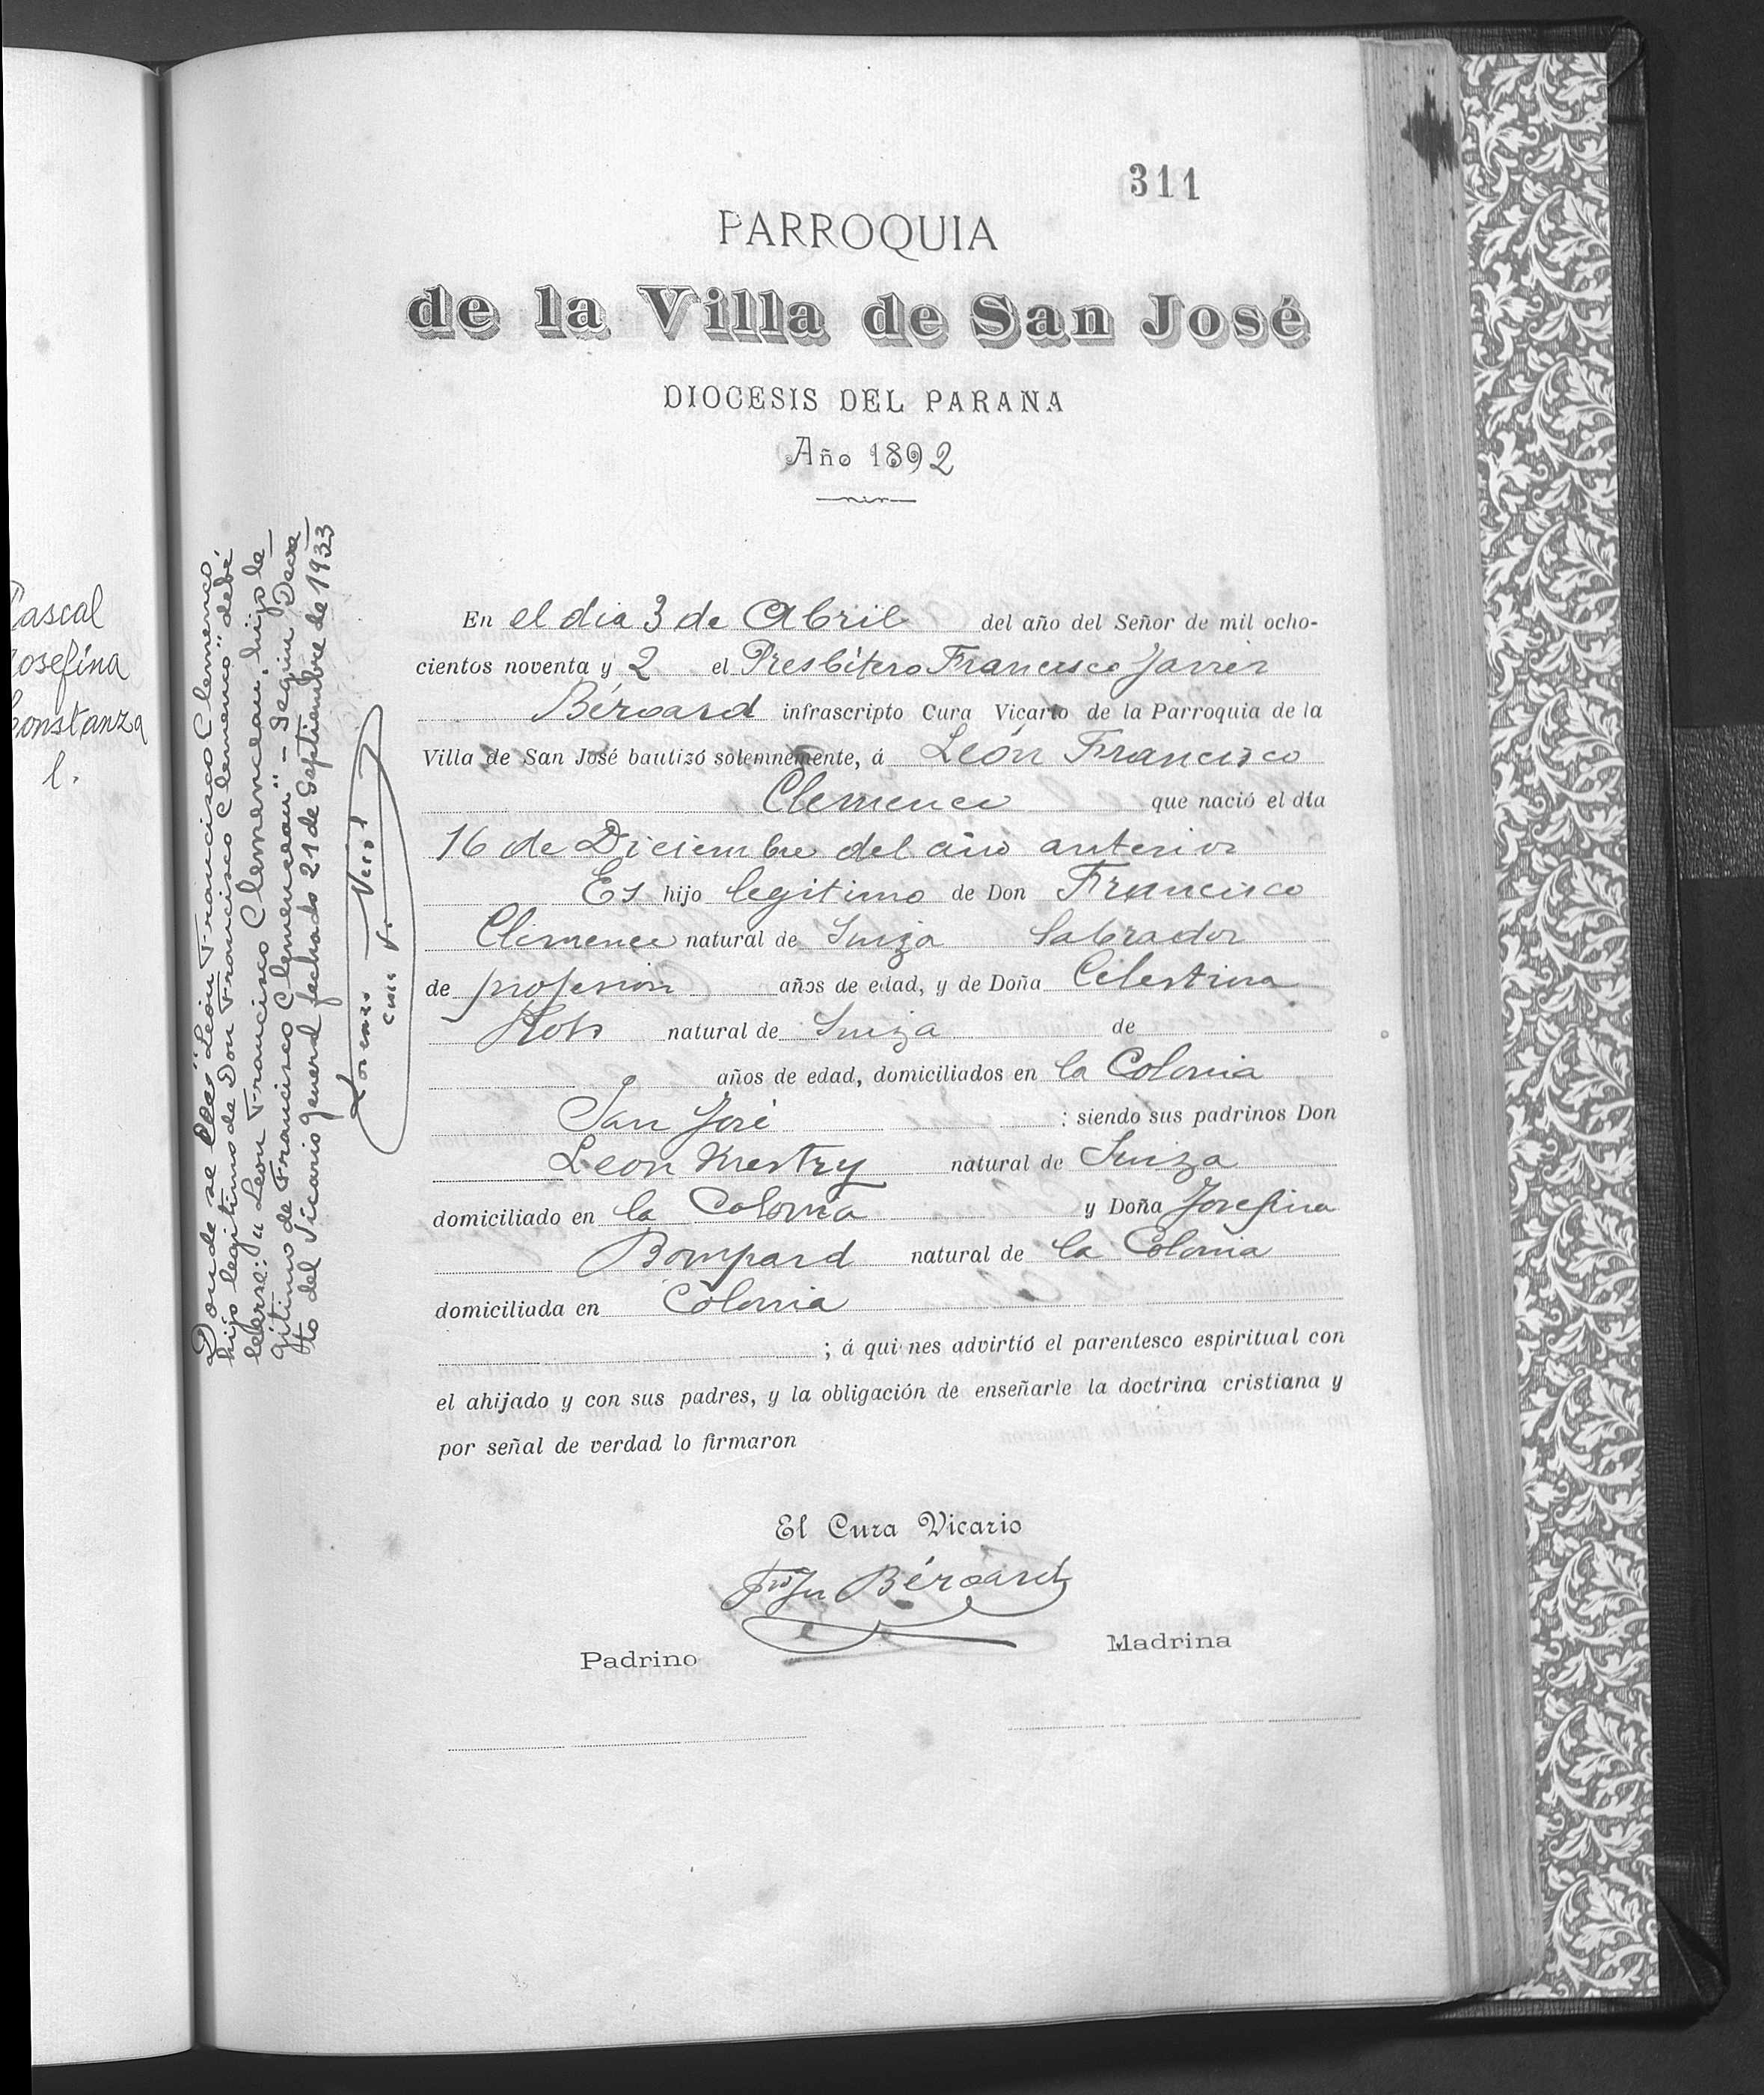 Pascal
Josefina
Constanza
l.
Donde se lee "León Francisco Clemenco,
hijo legitimo de Don Francisco Clemenco" debe
leerse: "León Francisco Clemenceau, hijo le-
gitimo de Francisco Clemenceau" - Según Decre-
to del Vicario general fechado 21 de Septiembre de 1933
Lorenzo
cura v.
311
PARROQUIA
de la Villa de San José
DIOCESIS DEL PARANA
Año 1892
En el dia 3 de Abril del año del Señor de mil ocho-
cientos noventa y 2 el Presbítero Francisco Javier
Béroard infrascripto Cura Vicario de la Parroquia de la
Villa de San José bautizó solemnemente, á León Francisco
Clemence que nació el dia
16 de Diciembre del año anterior
Es hijo legitimo de Don Francisco
Clemence natural de Suiza labrador
de profesion años de edad, y de Doña Celestina
natural de Suiza de
años de edad, domiciliados en la Colonia
San José : siendo sus padrinos Don
Leon Mestry natural de Suiza
domiciliado en la Colonia y Doña Josefina
Bompard natural de la Colonia
domiciliada en Colonia
; á qui nes advirtió el parentesco espiritual con
el ahijado y con sus padres, y la obligación de enseñarle la doctrina cristiana y
por señal de verdad lo firmaron
El Cura Vicario
Béroard
Padrino
Madrina